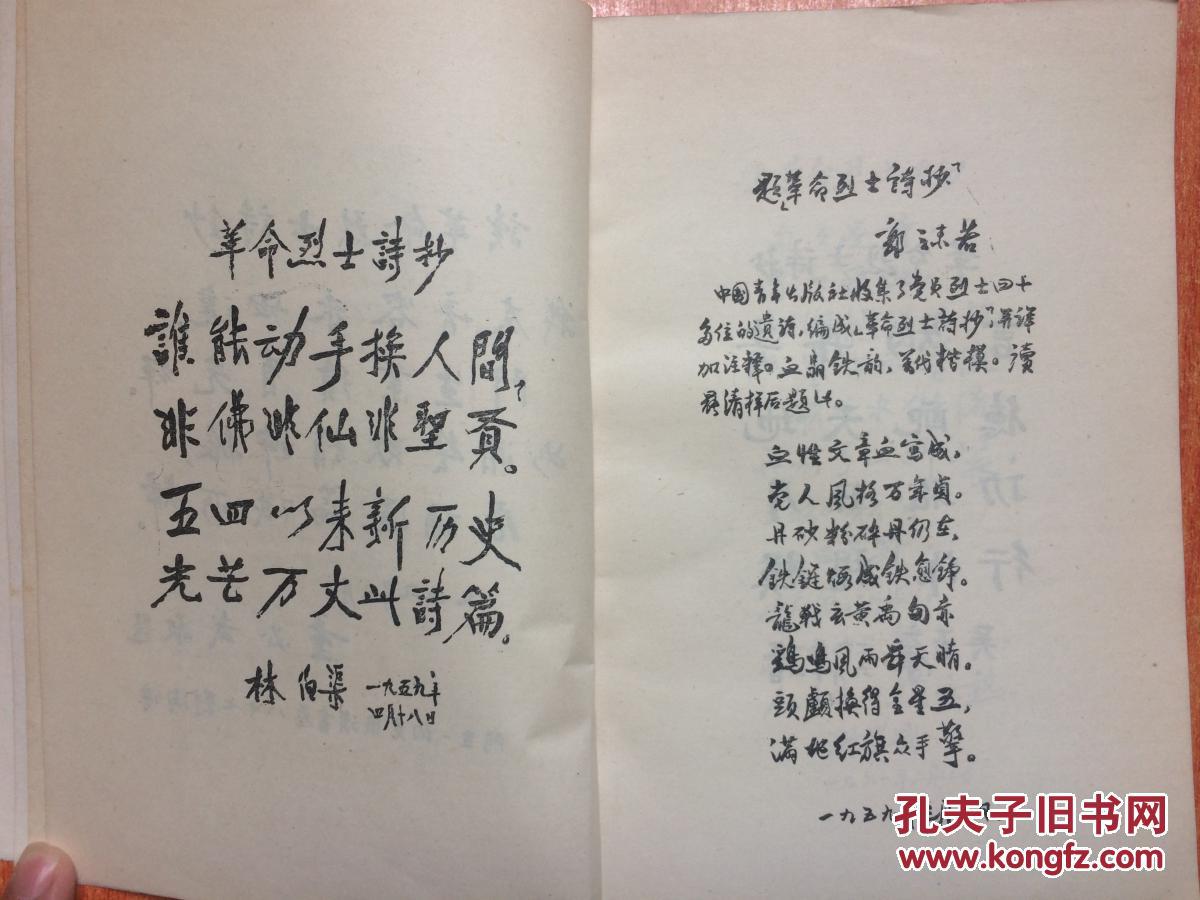 革命烈士詩抄
誰能动手換人間，
非佛非仙非聖賢。
五四以来新历史
光芒万丈此詩篇。
林伯渠 一九五九年
四月十八日
題「革命烈士詩抄」
郭沫若
中國青年出版社收集了党員烈士四十
多位的遺詩，編成「革命烈士詩抄」，并詳
加注釋。血晶铁韵，万代楷模。讀
清样后題此。
血性文章血寫成，
党人風格万年貞。
丹砂粉碎丹仍在，
铁鏈煅成铁愈錚。
龍戰玄黄禹甸赤
鷄鳴風雨舜天晴。
頭顱換得金星五，
滿地红旗众手擎。
一九五九年
孔夫子旧书网
www.kongfz.com